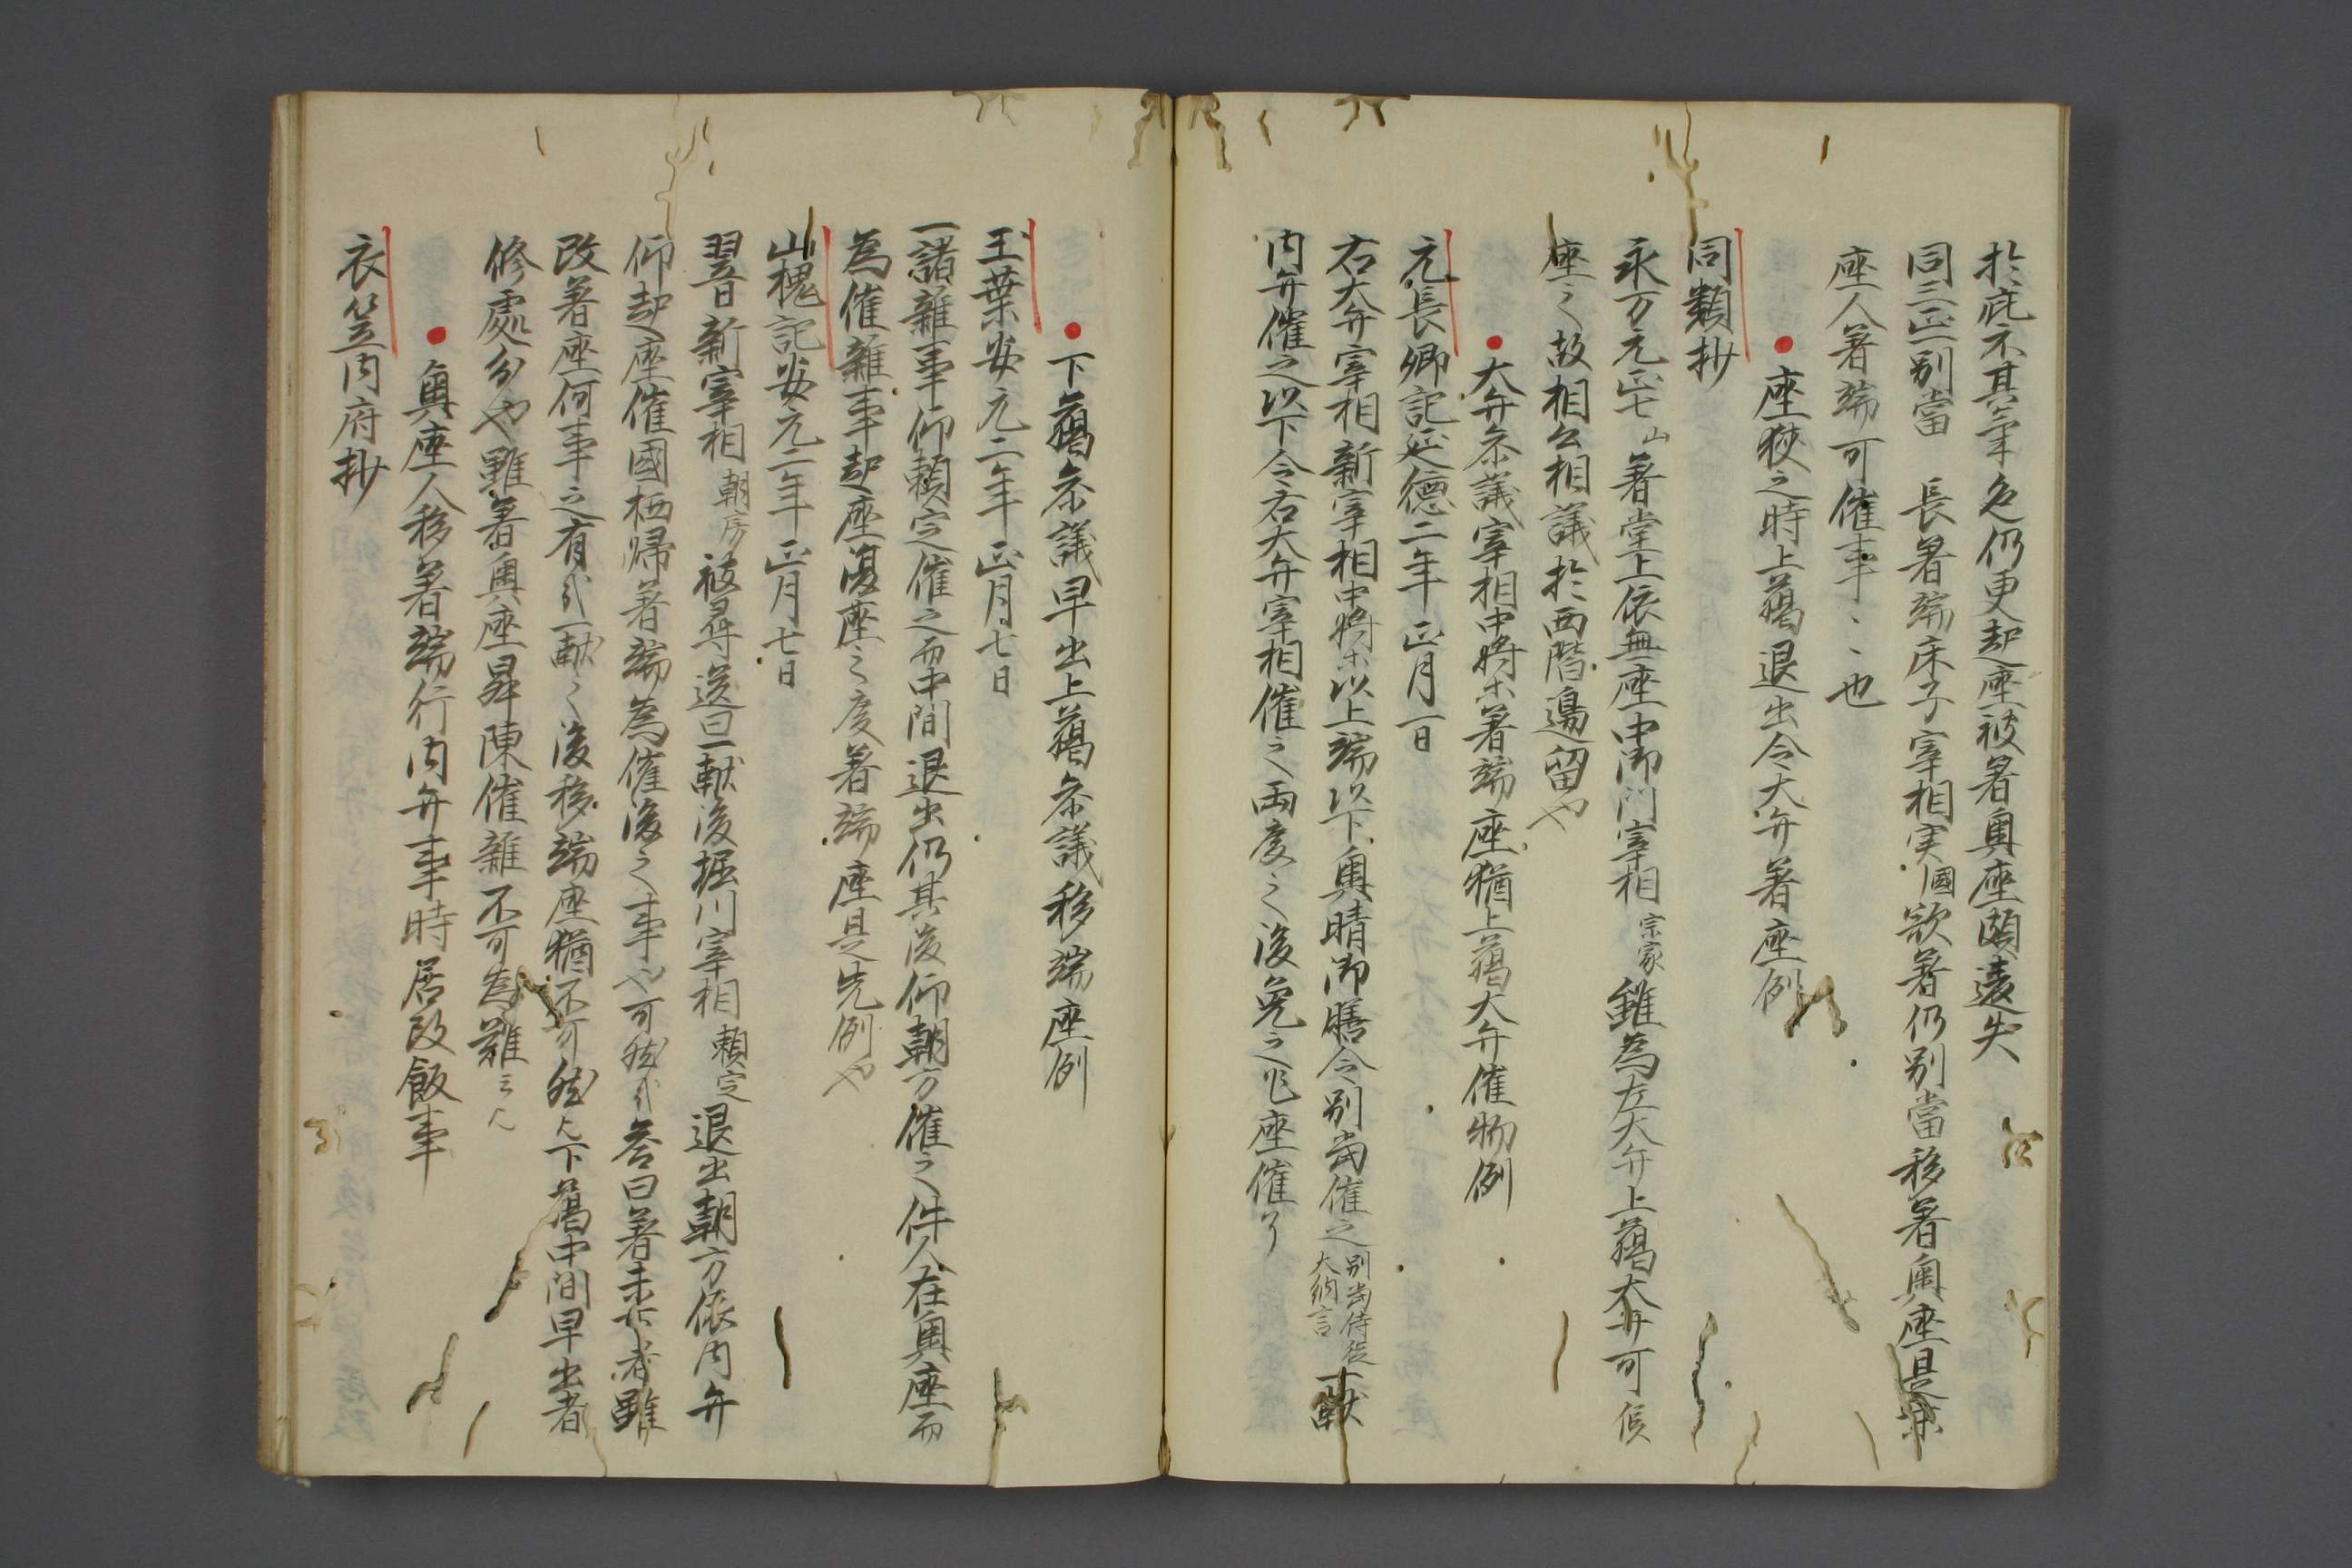 於庇不其 仍更起座被著奥座頗違失
同三正別當 長著端床子宰相実國欲著仍別當移著奥座是
座人著端可催事ミミ也
座狭之時上﨟退出令大弁著座例
同類抄
永万元正七 山 著堂上依無座中御門宰相宗家雖為左大弁上﨟大弁可候
座之故相公相議於西階邊留也
大弁参議宰相中将等著端座猶上﨟大弁催物例
元長卿記延徳二年正月一日
右大弁宰相新宰相中将等以上端以下奥晴御膳令別當催之別當侍従大納言一献
内弁催之以下令右大弁宰相催之両度之後免之 座催了
下﨟参議早出上﨟参議移端座例
玉葉安元二年正月七日
一諸雑事仰頼定催之而中間退出仍其後仰朝方催之件人在奥座而
為催雑事起座復座之度著端座是先例也
山槐記安元二年正月七日
翌日新宰相朝方被尋送曰一献後堀川宰相頼定退出朝方依内弁
仰起座催國栖帰著端為催後之事也可然哉答曰著 者雖
改著座何事之有哉一献之後移端座猶不可然 下﨟中間早出者
修處分也雖著奥座昇陳催雑不可為難云々
奥座人移著端行内弁事時居改飯事
衣笠内府抄